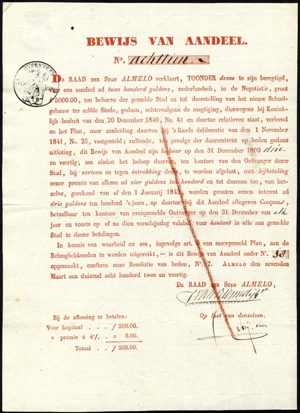 BEWIJS VAN AANDEEL.
No. achttien.
De RAAD der Stad ALMELO verklaart, TOONDER dezes te zijn geregtigd,
voor een aandeel ad twee honderd guldens, nederlandsch, in de Negotiatie, groot
ƒ 5000.00, ten behoeve der gemelde Stad en tot daarstelling van het nieuwe School-
gebouw ter zelfde Stede, gedaan, achtervolgens de magtiging, dieswegens bij Konink-
lijk besluit van den 20 December 1840, No. 41 en daartoe relatieven staat, verleend
en het Plan, naar aanleiding daarvan door 's Raads deliberatie van den 1 November
1841, No. 25, vastgesteld; zullende, ten gevolge der daaromtrent bestaande
uitloting, dit Bewijs van Aandeel zijn aflosbaar op den 31 December 1800 drie
en veertig, om alsdan het beloop daarvan, ten kantore van den Ontvanger dezer
Stad, bij vertoon en tegen intrekking dezes, te worden afgelost, met bijbetaling
eener premie van alsnu af vier guldens ten honderd en tot daaraan toe, van het-
zelve, gerekend van af den 1 Januarij 1842, worden genoten eenen interest ad
drie guldens ten honderd 's jaars, op daartoe bij dit Aandeel afgegeven Coupons,
betaalbaar ten kantore van evengemelde Ontvanger op den 31 December van elk
jaar en voorts op of na dien verschijndag valabel voor kontant in alle aan gemelde
Stad te doene betalingen.
In kennis van waarheid is een, ingevolge art. van meergemeld Plan, aan de
Belanghebbenden te worden uitgereikt, — is dit Bewijs van Aandeel onder No.
opgemaakt, conform onze Resolutie van heden, No. 7. ALMELO den zevenden
Maart een duizend acht honderd twee en veertig.
De RAAD der Stad ALMELO,
Op last van denzelven,
Bij de aflossing te betalen:
Voor kapitaal . . . ƒ 200.00.
» premie à 4/. » 8.00.
Totaal . . . ƒ 208.00.